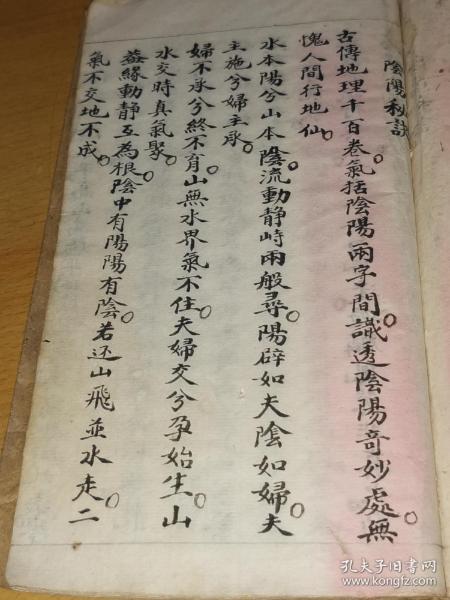 陰陽秘訣
古傳地理千百卷。氣括陰陽兩字間。識透陰陽奇妙處。無
愧人間行地仙。
水本陽兮山本陰。流動靜峙兩般尋。陽辟如夫陰如婦。夫
主施兮婦主承。
婦不承兮終不育。山無水界氣不住。夫婦交兮孕始生。山
水交時真氣聚。
蓋緣動靜互為根。陰中有陽陽有陰。若还山飛並水走。二
氣不交地不成。
孔夫子旧书网
www.kongfz.com